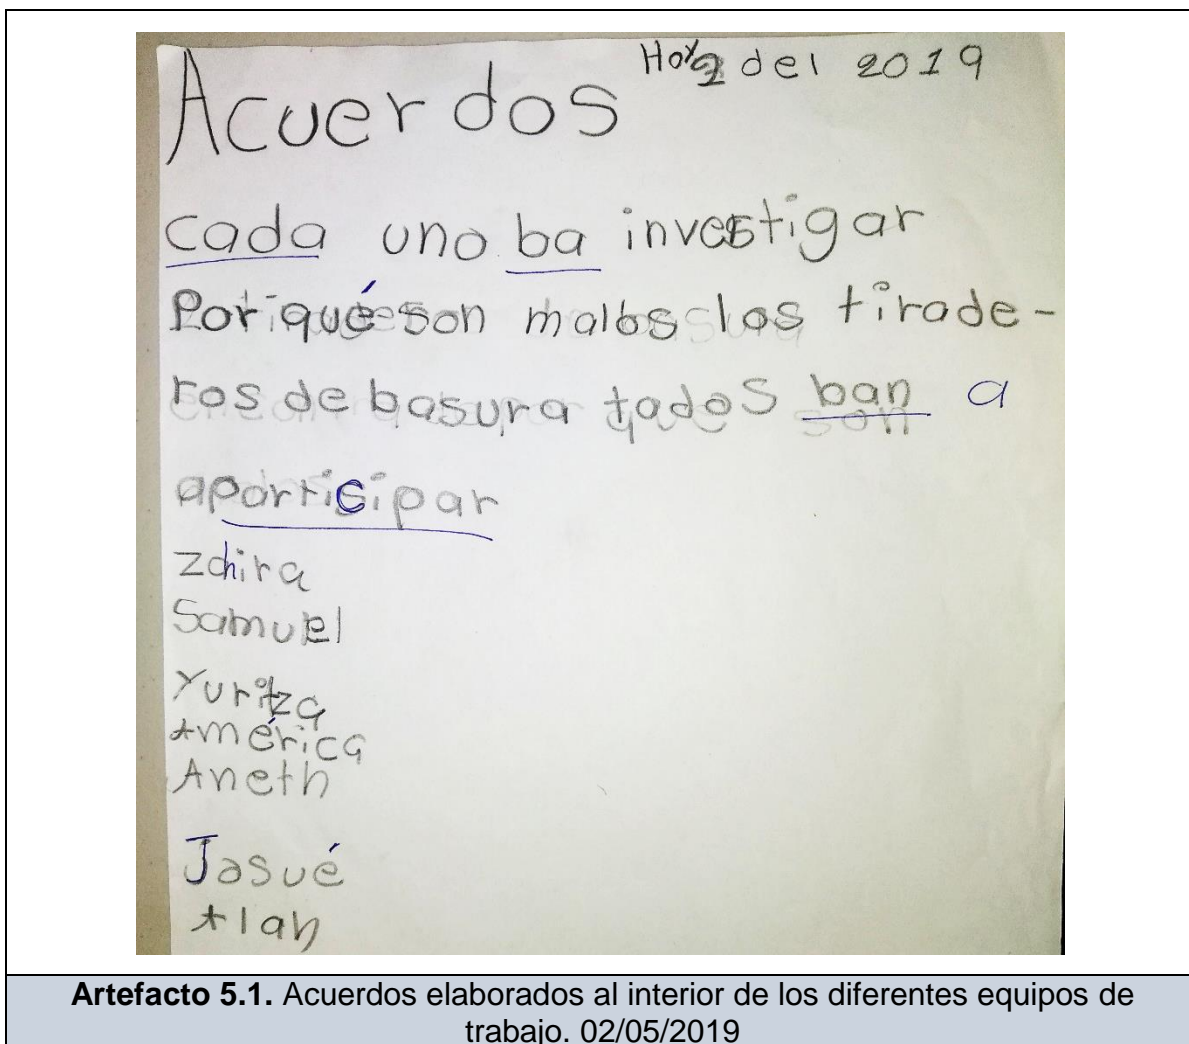 Hoy 2 del 2019
Acuerdos
cada uno ba investigar
Por qué son malos los tirade-
ros de basura tados ban a
aparticipar
Zahira
Samuel
Yuritza
América
Aneth
Josué
Alan
Artefacto 5.1. Acuerdos elaborados al interior de los diferentes equipos de
trabajo. 02/05/2019